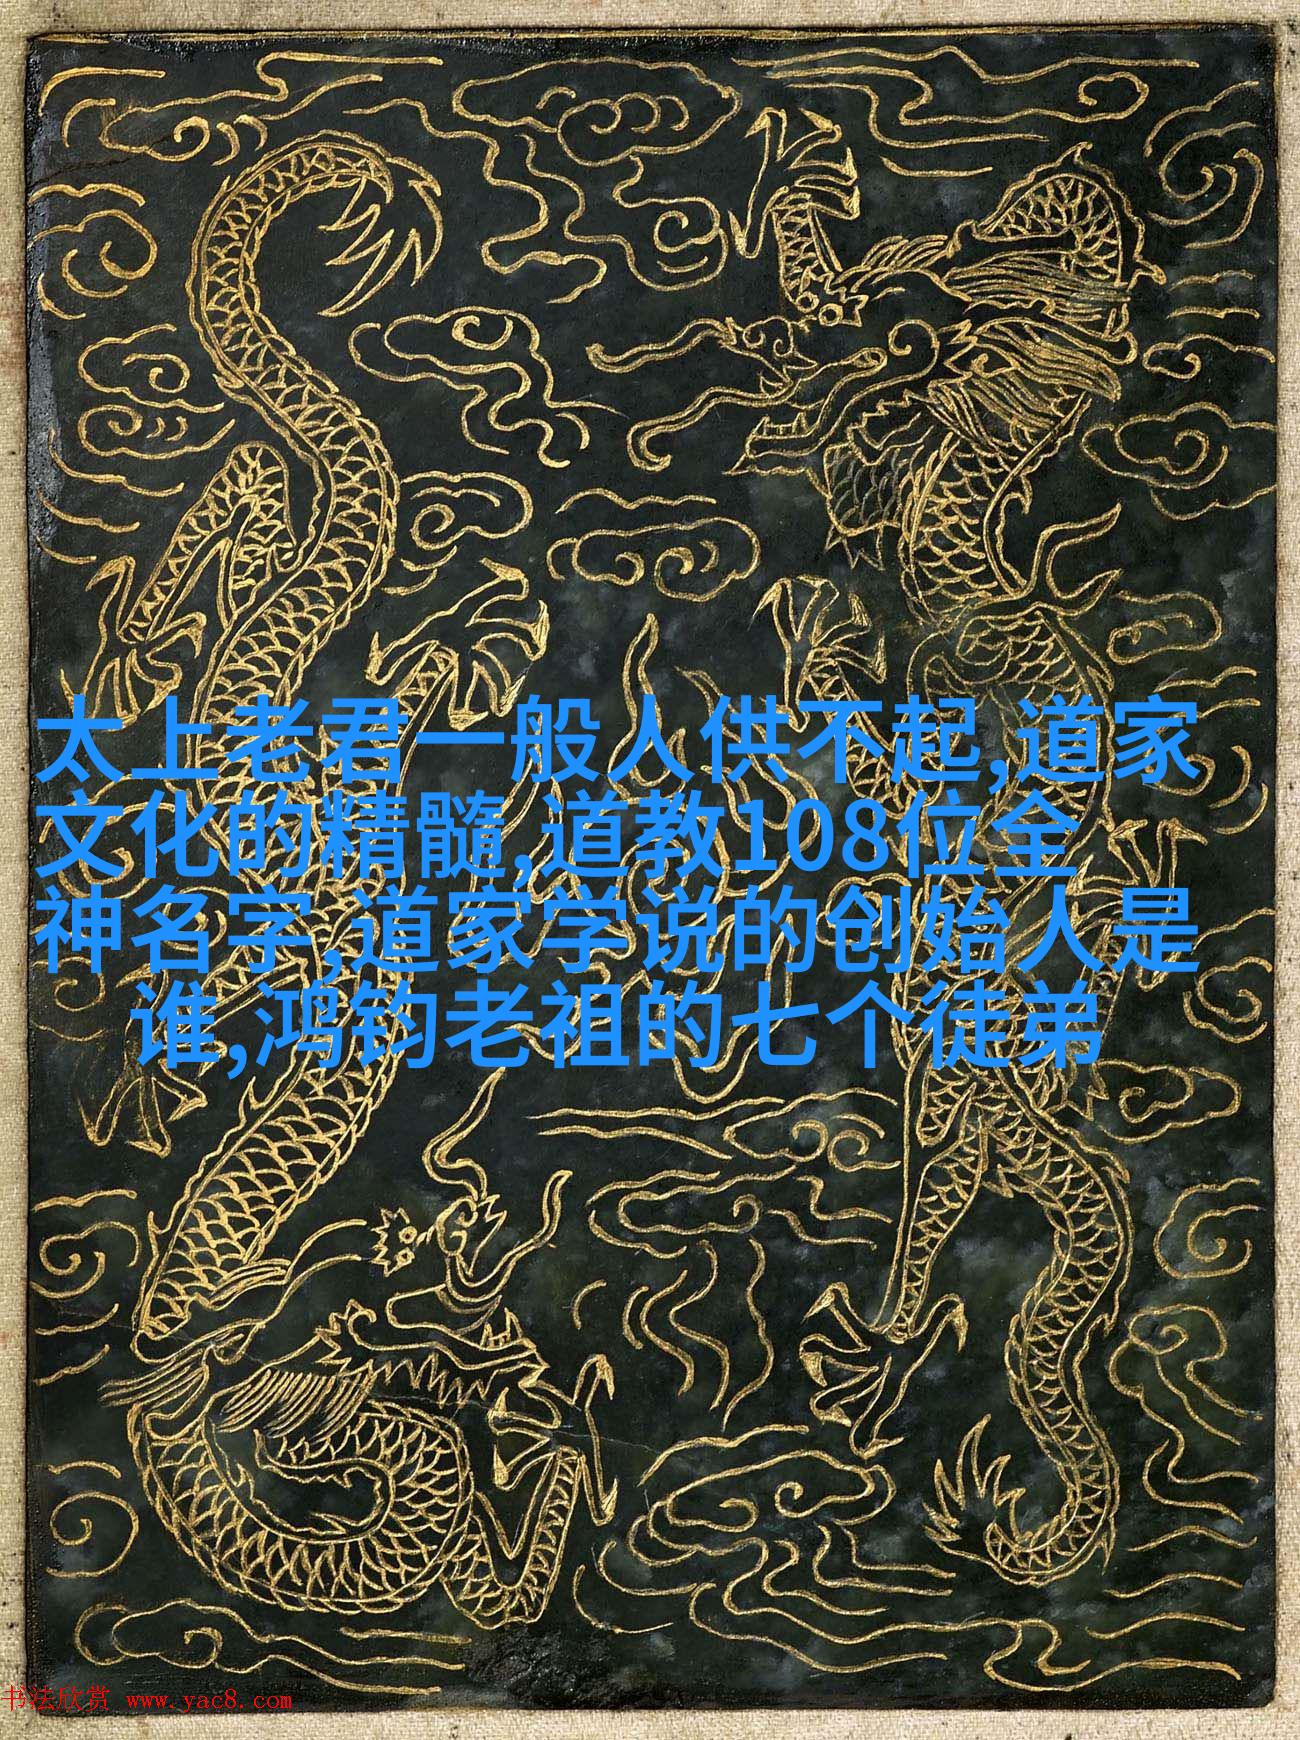 太上老君一般人供不起,道家
文化的精髓,道教108位全
神名字,道家学说的创始人是
谁,鸿钧老祖的七个徒弟
书法欣赏 www.yac8.com